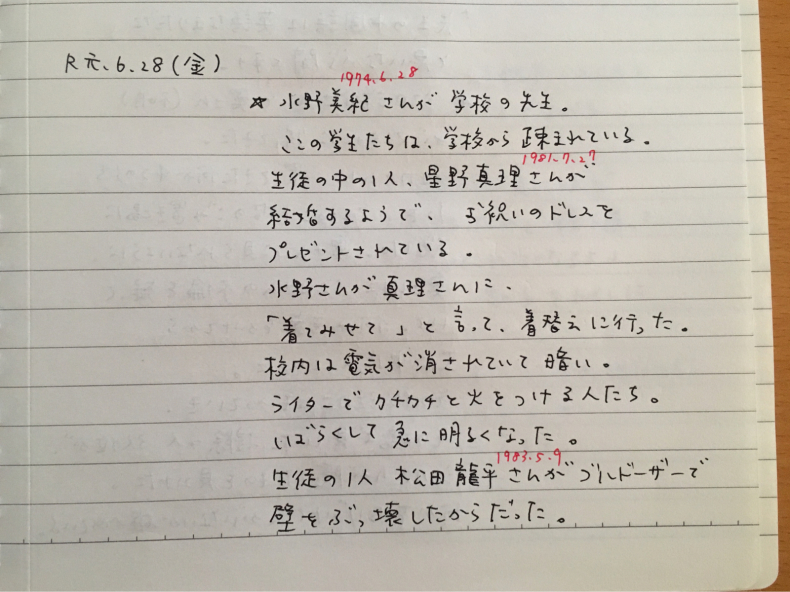 R元.6.28(金)
1974.6.28
☆ 水野美紀さんが学校の先生。
ここの学生たちは、学校から疎まれている。
1981.7.27
生徒の中の1人、星野真理さんが
結婚するようで、お祝いのドレスを
プレゼントされている。
水野さんが真理さんに、
「着てみせて」と言って、着替えに行った。
校内は電気が消されていて暗い。
ライターでカチカチと火をつける人たち。
いばらくして急に明るくなった。
1983.5.9
生徒の1人 松田龍平さんがブルドーザーで
壁をぶっ壊したからだった。